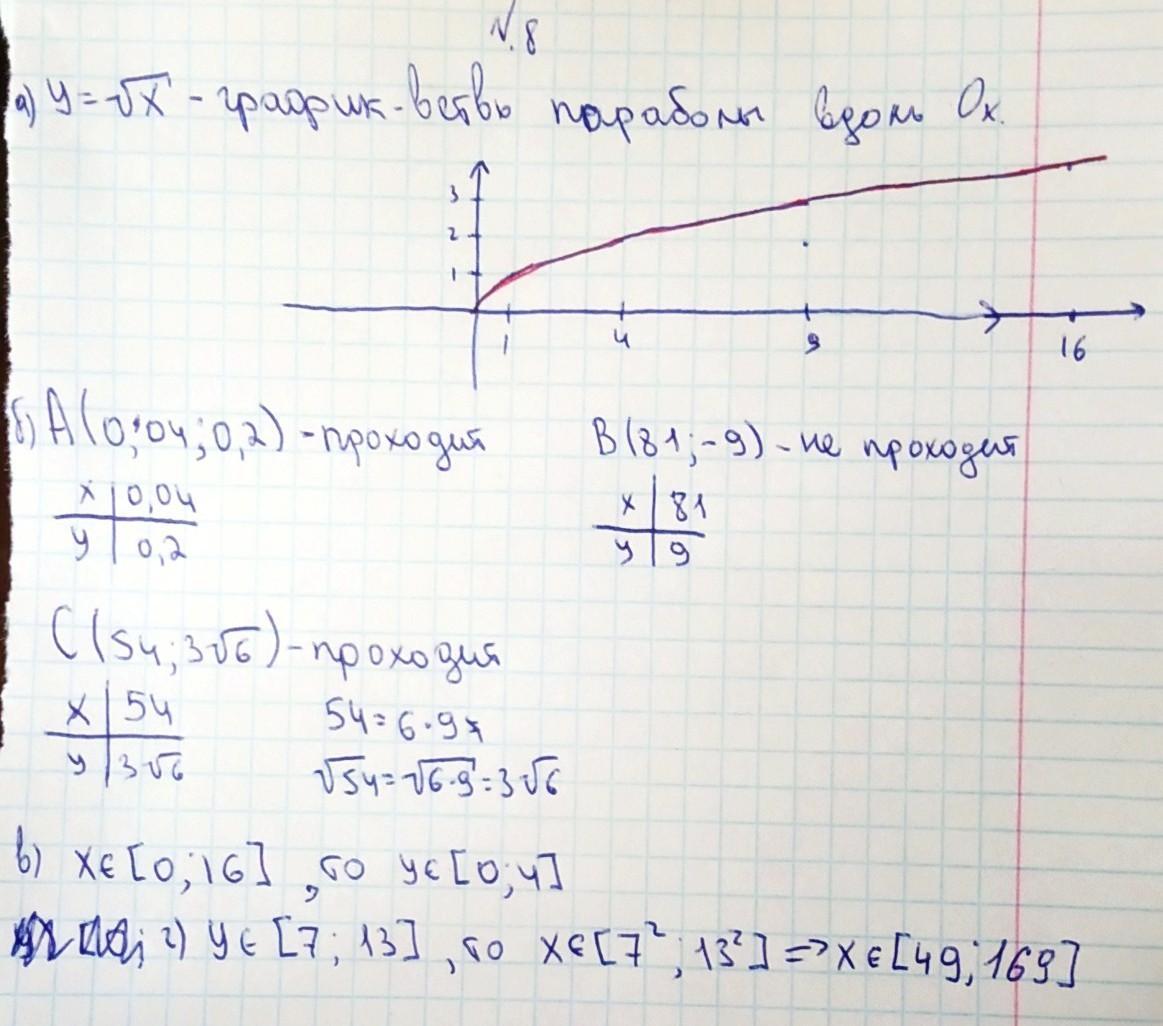 N.8
а) y = √x - график - ветвь параболы вдоль Ox.
3
2
1
1 4 9 16
б) A(0,04; 0,2) - проходит B(81; -9) - не проходит
x | 0,04 x | 81
y | 0,2 y | 9
C(54; 3√6) - проходит
x | 54 54 = 6·9
y | 3√6 √54 = √6·9 = 3√6
в) x ∈ [0; 16] , то y ∈ [0; 4]
г) y ∈ [7; 13] , то x ∈ [7²; 13²] => x ∈ [49; 169]